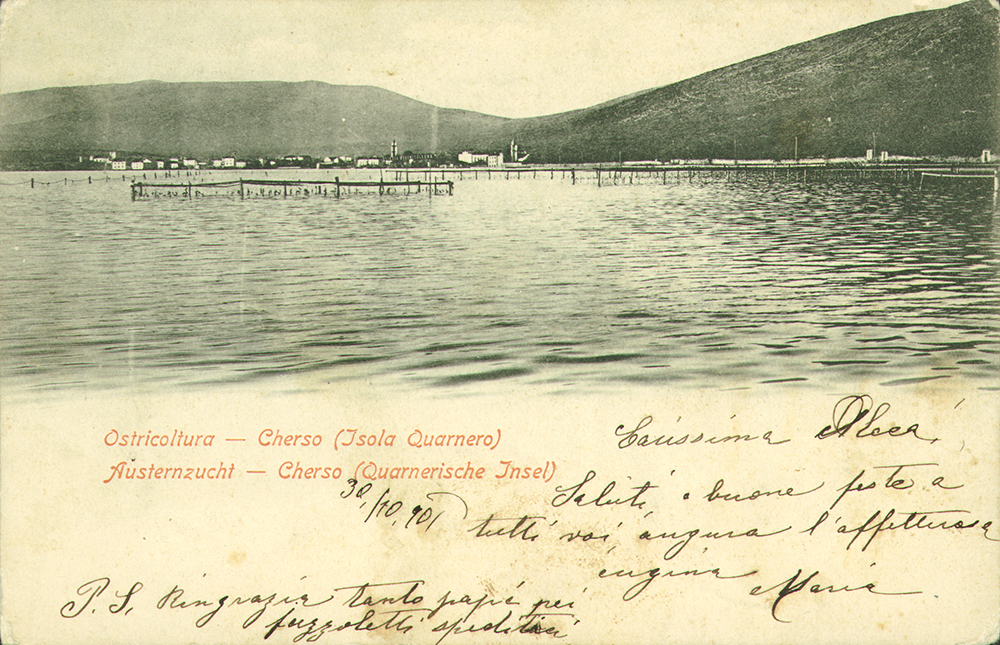 Ostricoltura — Cherso (Isola Quarnero)
Austernzucht — Cherso (Quarnerische Insel)
30/10,901
Carissima
Saluti, e buone feste a
tutti voi augura l'affettuosa
cugina
Maria
P.S. Ringrazia tanto papà pei
fazzoletti speditici